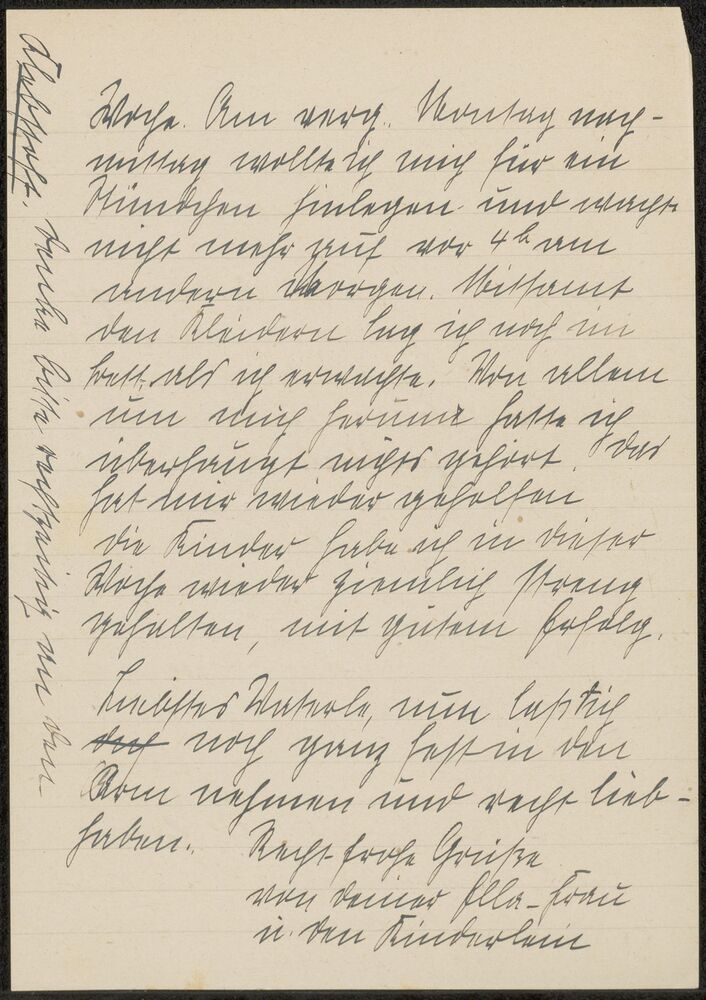 Woche. Am verg. Montag nach-
mittag wollte ich mich für ein
Stündchen hinlegen und wachte
nicht mehr auf vor 4 h am
andern Morgen. Mitsamt
den Kleidern lag ich noch im
Bett, als ich erwachte. Von allem
um mich herum hatte ich
überhaupt nichts gehört. Das
hat mir wieder geholfen
die Kinder habe ich in dieser
Woche wieder ziemlich streng
gehalten, mit gutem Erfolg.
Liebstes Vaterle, nun laß dich
dich noch ganz fest in den
Arm nehmen und recht lieb-
haben. Recht frohe Grüße
von deiner Ella-Frau
u. den Kinderlein
Klebstoff. Denke bitte rechtzeitig an den